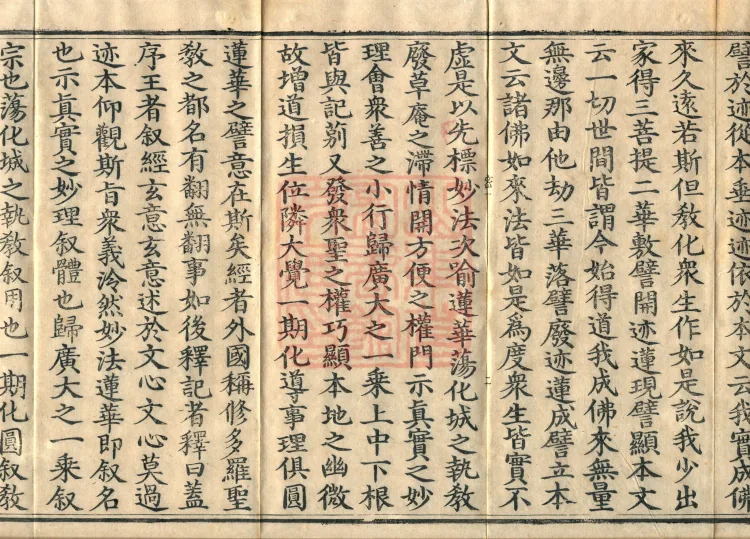 譬於迹從本垂迹迹依於本文云我實成佛
來久遠若斯但教化衆生作如是說我少出
家得三菩提二華敷譬開迹蓮現譬顯本文
云一切世間皆謂今始得道我成佛來無量
無邊那由他劫三華落譬廢迹蓮成譬立本
文云諸佛如來法皆如是爲度衆生皆實不
虛是以先標妙法次喻蓮華蕩化城之執教
廢草庵之滯情開方便之權門示眞實之妙
理會衆善之小行歸廣大之一乘上中下根
皆與記莂又發衆聖之權巧顯本地之幽微
故增道損生位隣大覺一期化導事理俱圓
蓮華之譬意在斯矣經者外國稱修多羅聖
教之都名有翻無翻事如後釋記者釋曰蓋
序王者叙經玄意玄意述於文心文心莫過
迹本仰觀斯旨衆義泠然妙法蓮華即叙名
也示眞實之妙理叙體也歸廣大之一乘叙
宗也蕩化城之執教叙用也一期化圓叙教